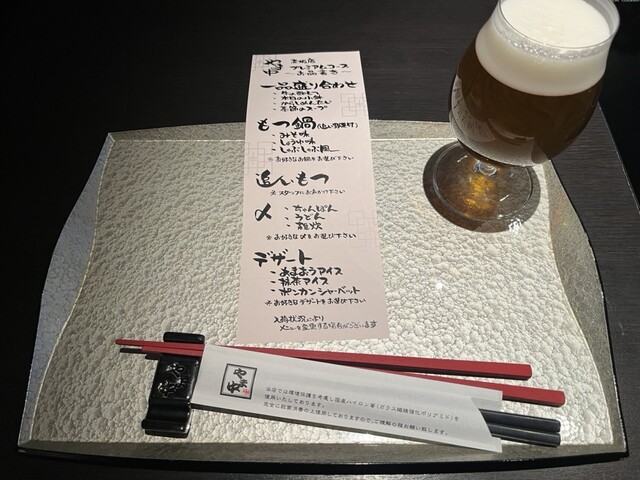 プレミアムコース
～お品書き～
一品盛り合わせ
・酢もつ
・本日の小鉢
・からしめんたい
・季節のスープ
もつ鍋(追い野菜付)
・みそ味
・しょうゆ味
・しゃぶしゃぶ風
※お好きなお鍋をお選び下さい
追いもつ
※スタッフにお声かけ下さい
〆
・ちゃんぽん
・うどん
・雑炊
※お好きな〆をお選び下さい
デザート
・あまおうアイス
・抹茶アイス
・ポンカンシャーベット
※お好きなデザートをお選び下さい
入荷状況により
メニューを変更する場合がございます
当店では環境保護を考慮し国産ハイロン箸(ガラス繊維強化ポリアミド)を
使用いたしております。
完全に殺菌消毒の上使用しておりますので、ご理解の程お願い致します。